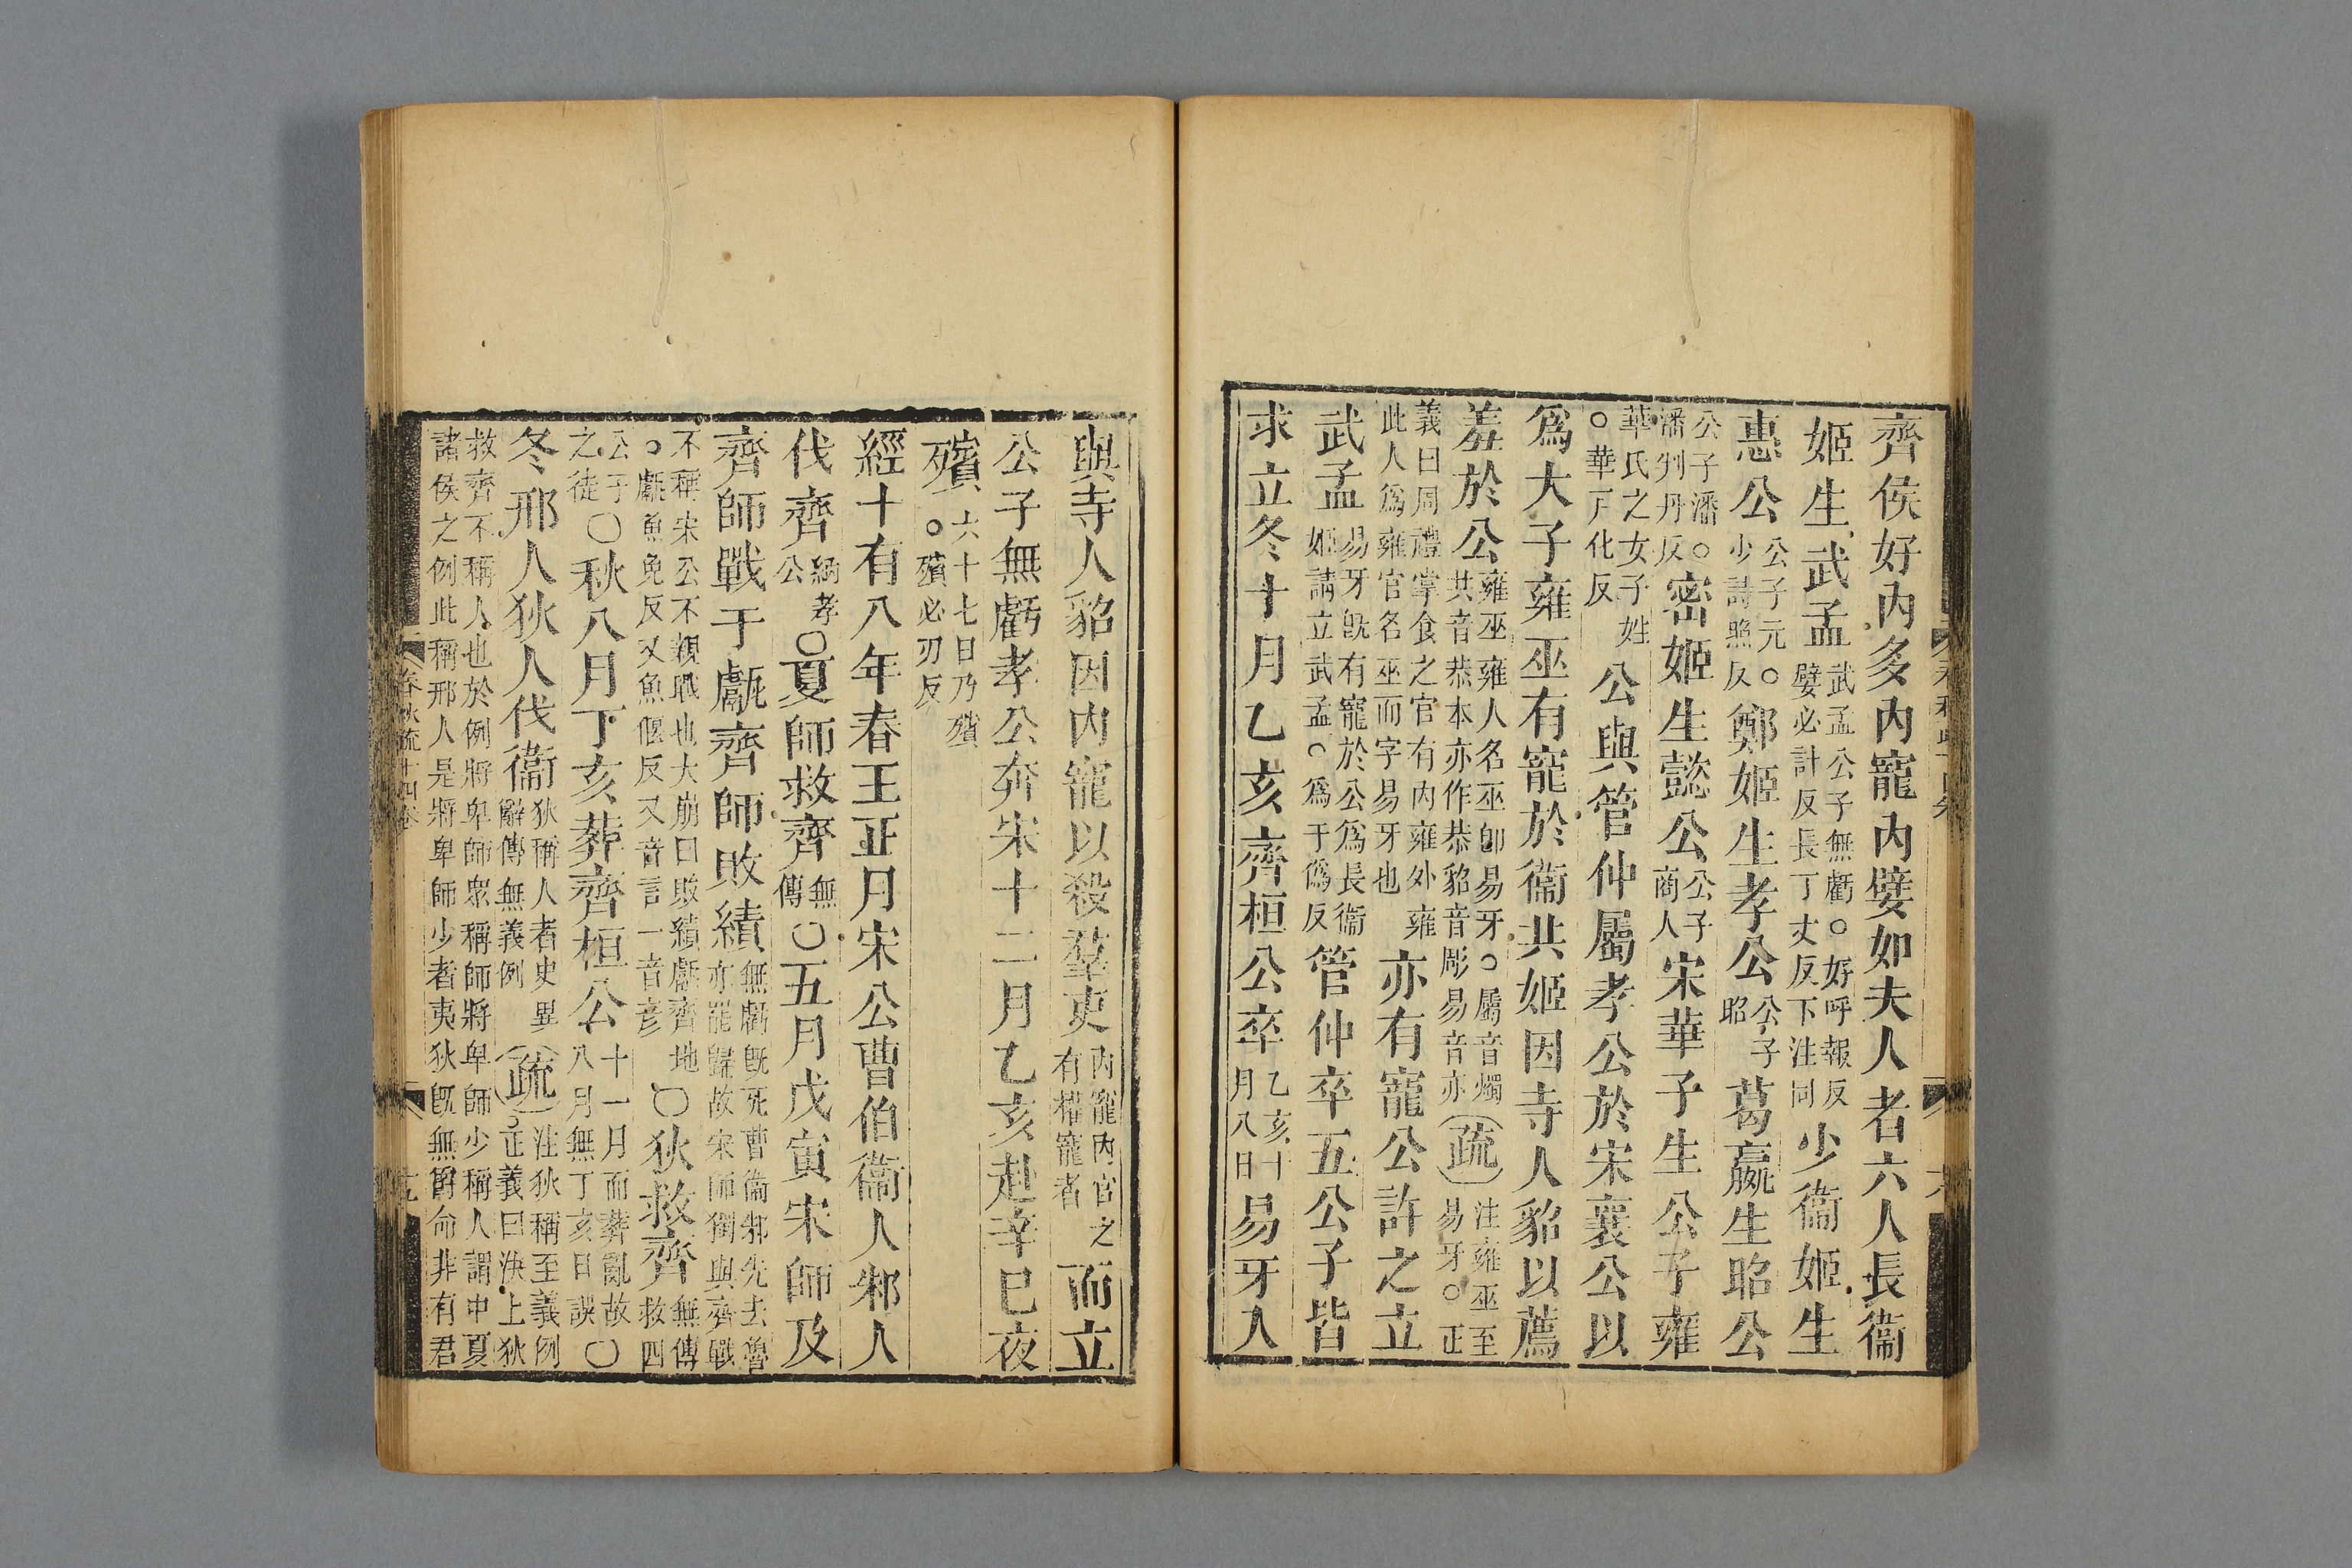 齊侯好內多內寵內嬖如夫人者六人長衞
姬生武孟武孟公子無虧○好呼報反嬖必計反長丁丈反下注同少衞姬生
惠公公子元○少詩照反鄭姬生孝公公子昭葛嬴生昭公
公子潘○潘判丹反密姬生懿公公子商人宋華子生公子雍
華氏之女子姓○華戸化反公與管仲屬孝公於宋襄公以
爲大子雍巫有寵於衞共姬因寺人貂以薦
羞於公雍巫雍人名巫卽易牙○屬音燭共音恭本亦作恭貂音彫易音亦疏注雍巫至易牙○正
義曰周禮掌食之官有內雍外雍此人爲雍官名巫而字易牙也亦有寵公許之立
武孟易牙旣有寵於公爲長衞姬請立武孟○爲于僞反管仲卒五公子皆
求立冬十月乙亥齊桓公卒乙亥十月八日易牙入
與寺人貂因內寵以殺羣吏內寵內官之有權寵者而立
公子無虧孝公奔宋十二月乙亥赴辛巳夜
殯六十七日乃殯○殯必刃反
經十有八年春王正月宋公曹伯衞人邾人
伐齊納孝公○夏師救齊無傳○五月戊寅宋師及
齊師戰于甗齊師敗績無虧旣死曹衞邾先去魯亦罷歸故宋師獨與齊戰
不稱宋公不親戰也大崩曰敗績甗齊地○甗魚免反又魚偃反又音言一音彥○狄救齊無傳救四
公子之徒○秋八月丁亥葬齊桓公十一月而葬亂故八月無丁亥日誤○
冬邢人狄人伐衞狄稱人者史異辭傳無義例疏注狄稱至義例○正義曰決上狄
救齊不稱人也於例將卑師眾稱師將卑師少稱人謂中夏諸侯之例此稱邢人是將卑師少者夷狄旣無爵命非有君
春秋疏十四卷
十九